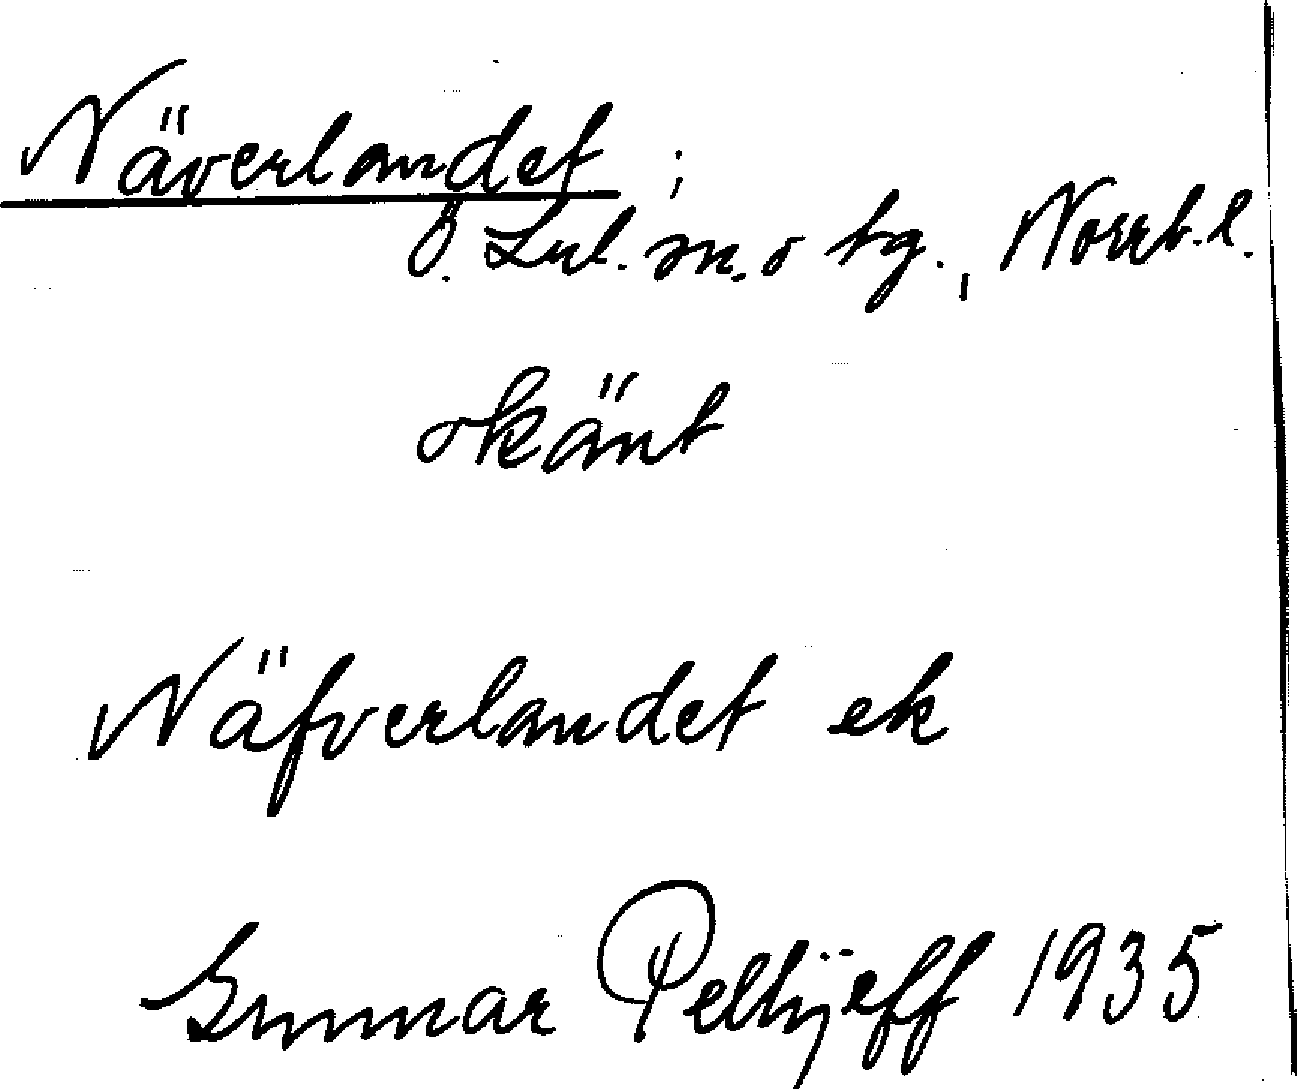 Näverlandet ;
Ö. Lul. m. o tg., Norrb. l.
okänt
Näfverlandet ek
Gunnar Pellijeff 1935